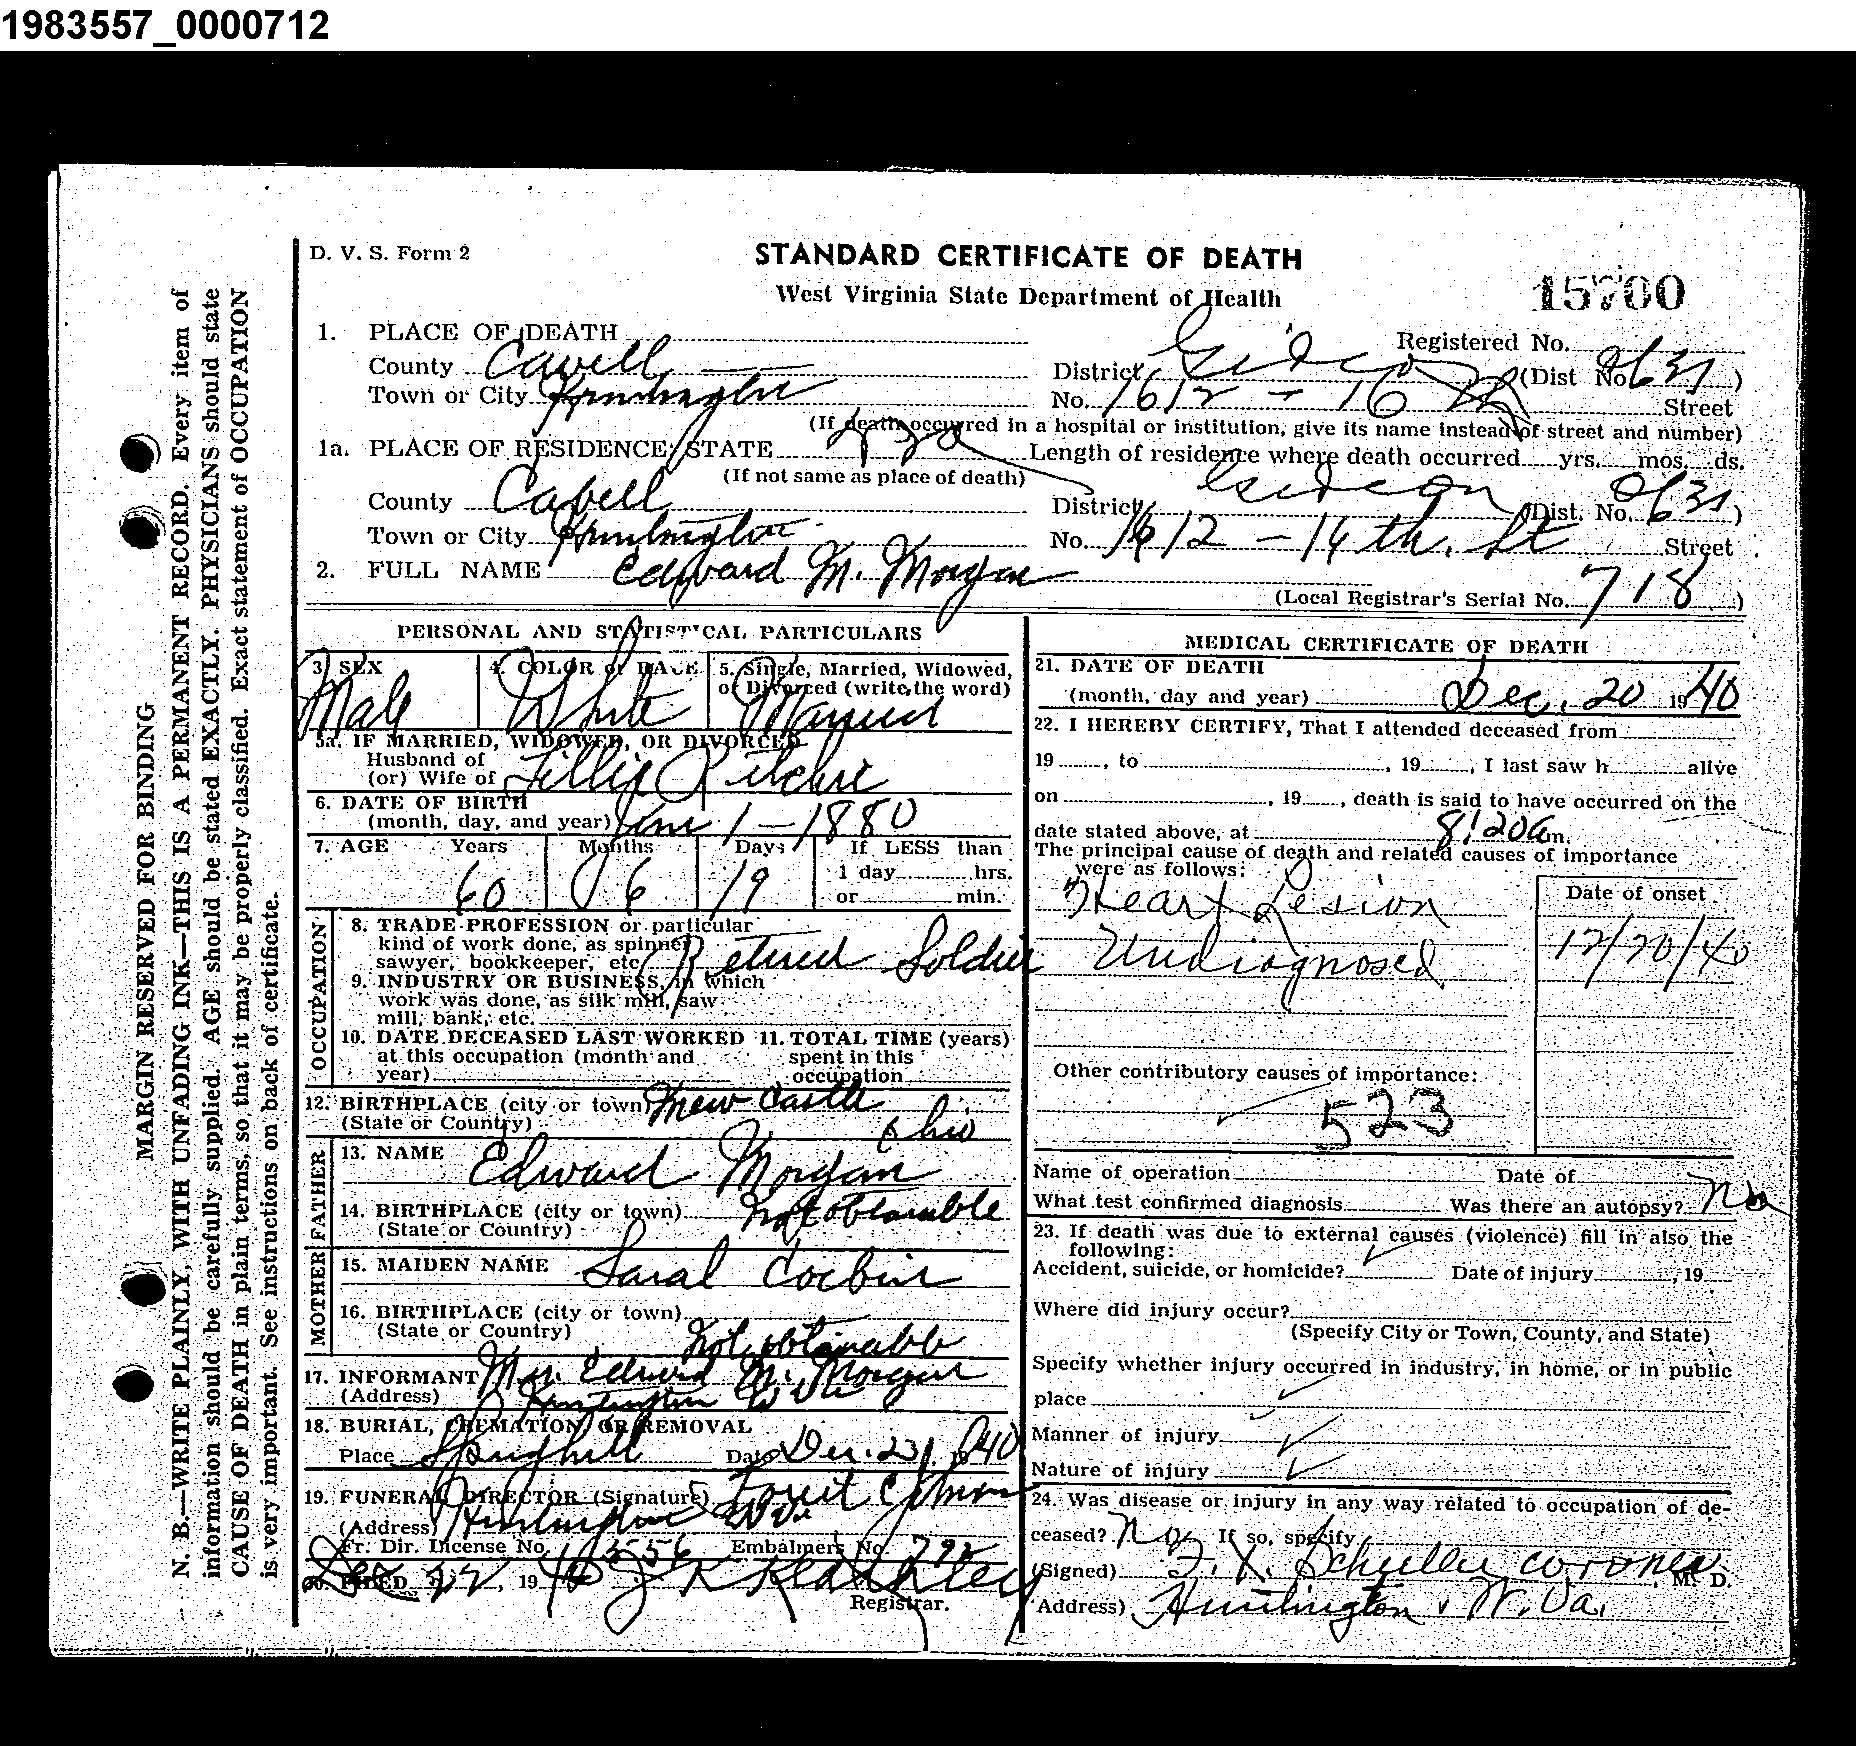 1983557_0000712
D. V. S. Form 2
STANDARD CERTIFICATE OF DEATH
West Virginia State Department of Health
15700
1. PLACE OF DEATH
Registered No.
County Cavell
District Gideon (Dist No. 0631)
Town or City Huntington
No. 1612 - 16 th Street
(If death occurred in a hospital or institution, give its name instead of street and number)
1a. PLACE OF RESIDENCE: STATE
Length of residence where death occurred yrs. mos. ds.
(If not same as place of death)
County Cabell
District Gideon (Dist. No. 0631)
Town or City Huntington
No. 1612 - 16 th. St Street
2. FULL NAME Edward M. Morgan
(Local Registrar's Serial No. 718)
PERSONAL AND STATISTICAL PARTICULARS
3. SEX
Male
4. COLOR or RACE
White
5. Single, Married, Widowed, or Divorced (write the word)
Married
5a. IF MARRIED, WIDOWED, OR DIVORCED
Husband of
(or) Wife of Lillie Ritchie
6. DATE OF BIRTH
(month, day, and year) June 1-1880
7. AGE Years Months Days If LESS than
1 day hrs.
60 6 19 or min.
OCCUPATION
8. TRADE PROFESSION or particular
kind of work done, as spinner,
sawyer, bookkeeper, etc. Retired Soldier
9. INDUSTRY OR BUSINESS, in which
work was done, as silk mill, saw
mill, bank, etc.
10. DATE DECEASED LAST WORKED
at this occupation (month and
year)
11. TOTAL TIME (years)
spent in this
occupation
12. BIRTHPLACE (city or town) New Castle
(State or Country) Ohio
FATHER
13. NAME Edward Morgan
14. BIRTHPLACE (city or town) Not obtainable
(State or Country)
MOTHER
15. MAIDEN NAME Saral Corbin
16. BIRTHPLACE (city or town)
(State or Country) Not obtainable
17. INFORMANT Mrs. Edward M. Morgan
(Address) Huntington W Va
18. BURIAL, CREMATION OR REMOVAL
Place Springhill Date Dec. 21, 1940
19. FUNERAL DIRECTOR (Signature)
(Address) Huntington W Va
Fr. Dir. License No. 556 Embalmers No. 792
20. FILED Dec 22, 1940
Registrar.
MEDICAL CERTIFICATE OF DEATH
21. DATE OF DEATH
(month, day and year) Dec. 20 1940
22. I HEREBY CERTIFY, That I attended deceased from
19 , to , 19 , I last saw h alive
on , 19 , death is said to have occurred on the
date stated above, at 8:20 a m.
The principal cause of death and related causes of importance
were as follows:
Date of onset
Heart Lesion
Undiagnosed 12/20/40
Other contributory causes of importance:
523
Name of operation Date of
What test confirmed diagnosis Was there an autopsy? No
23. If death was due to external causes (violence) fill in also the
following:
Accident, suicide, or homicide? Date of injury , 19
Where did injury occur?
(Specify City or Town, County, and State)
Specify whether injury occurred in industry, in home, or in public
place
Manner of injury
Nature of injury
24. Was disease or injury in any way related to occupation of de-
ceased? No If so, specify
(Signed) F. X. Schuller coroner M. D.
Address) Huntington, W. Va.
MARGIN RESERVED FOR BINDING
N. B.—WRITE PLAINLY, WITH UNFADING INK—THIS IS A PERMANENT RECORD. Every item of
information should be carefully supplied. AGE should be stated EXACTLY. PHYSICIANS should state
CAUSE OF DEATH in plain terms, so that it may be properly classified. Exact statement of OCCUPATION
is very important. See instructions on back of certificate.